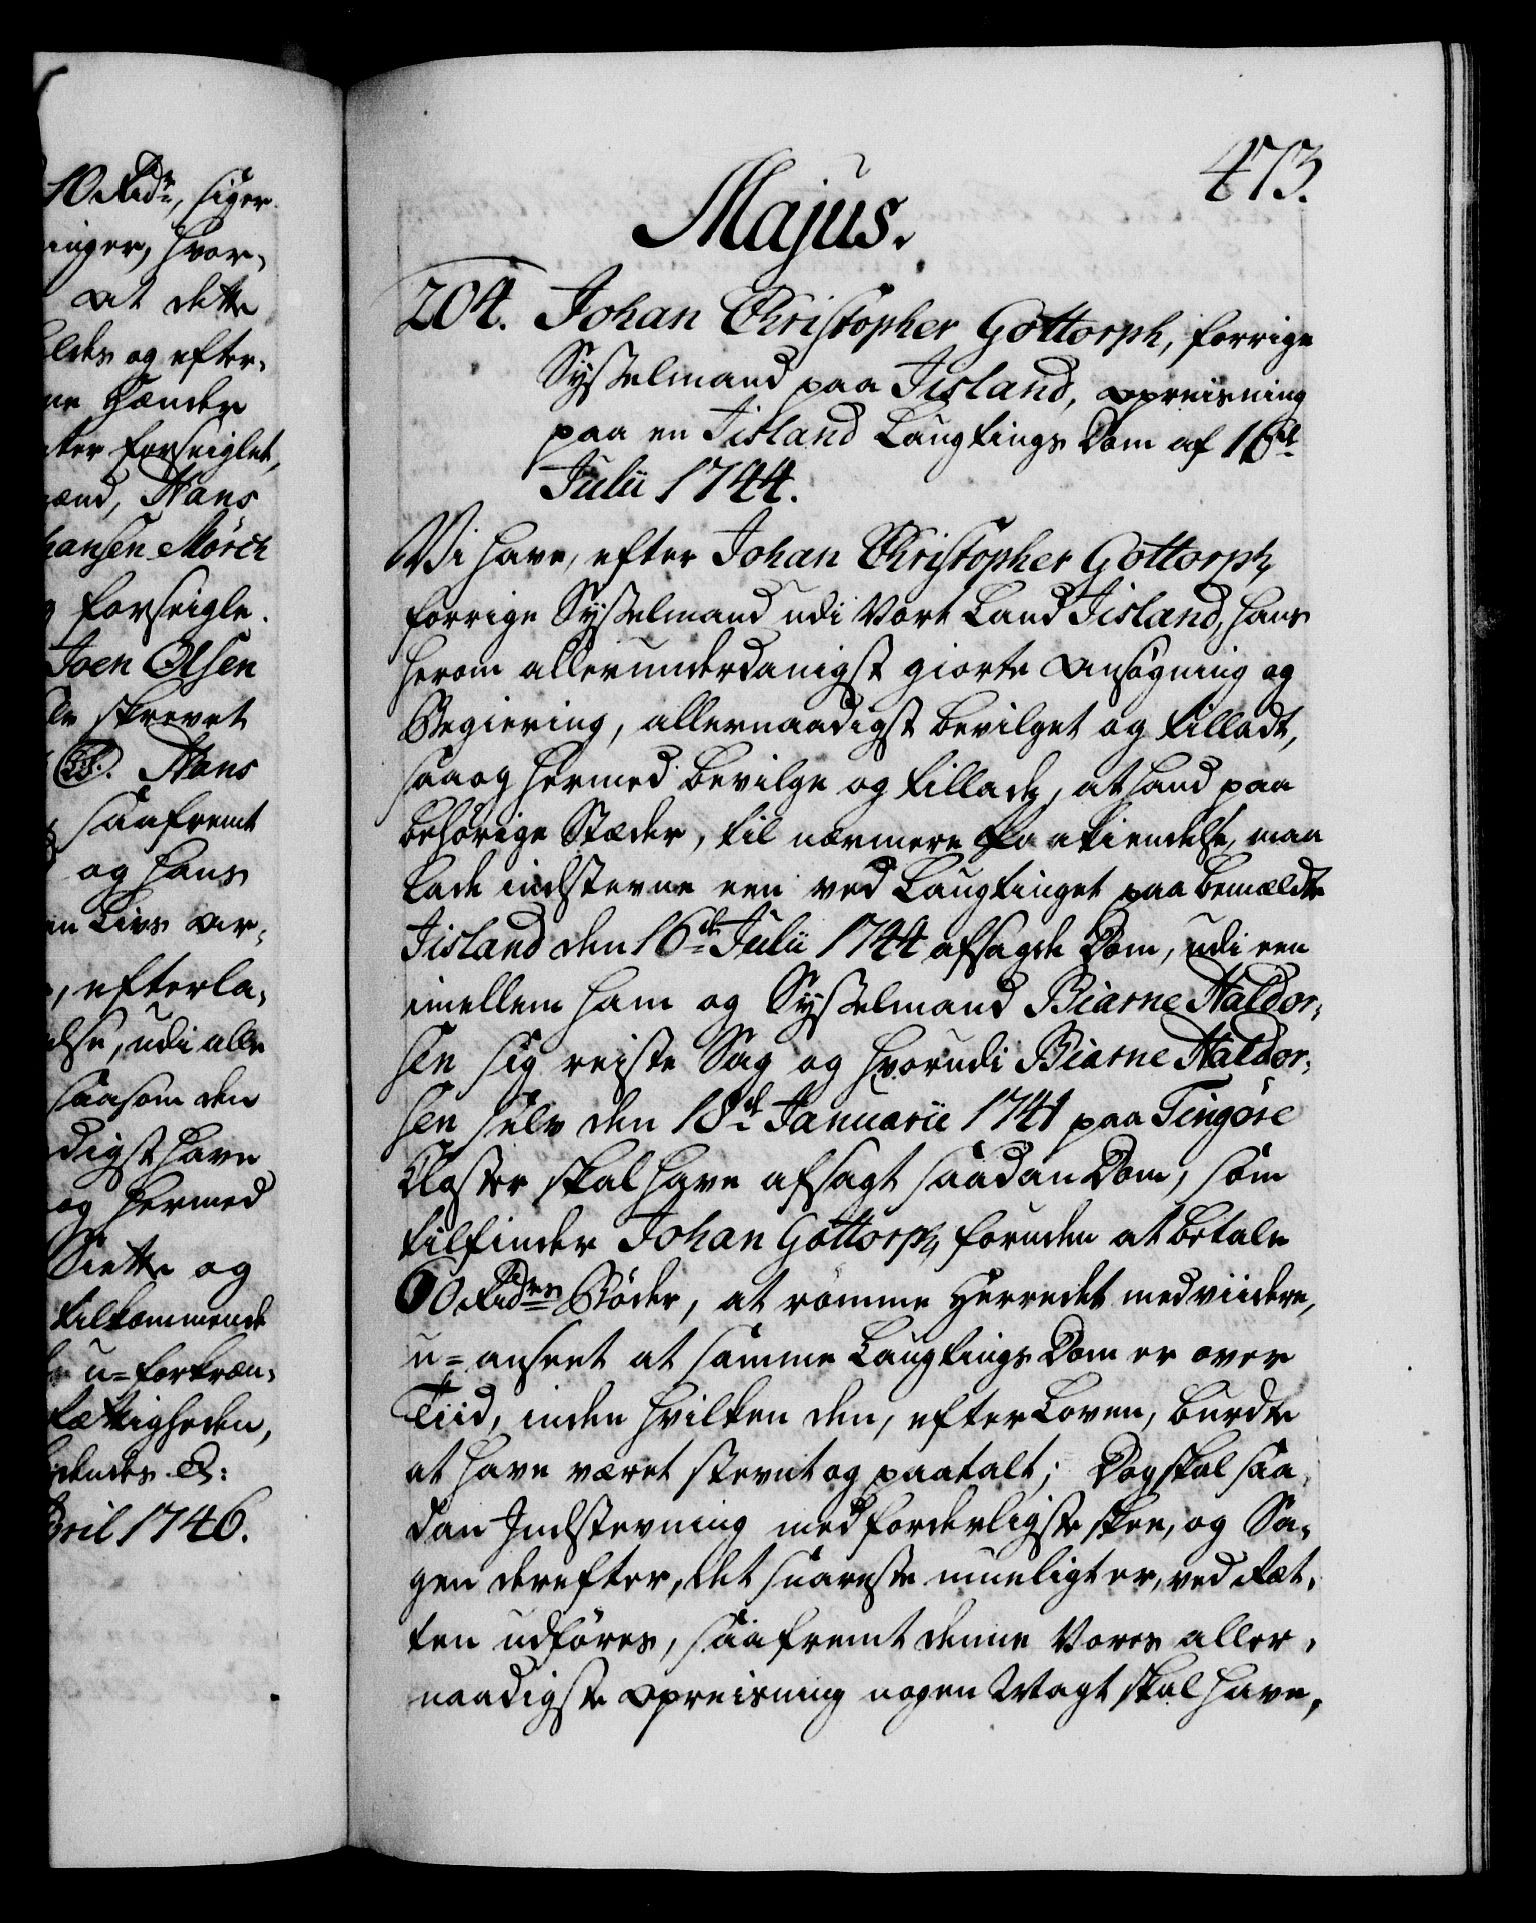 10 Rdr, siger
inger, hvor-
at dette
eldes og efter-
ne Hænder
ter forseiglet,
mænd, Hans
hansen Mørch
forseigle.
Joen Olsen
skrevet
Hans
saafremt
og hans
en Livs Ar-
, efterla-
else, udi alle
saasom den
digst have
og hermed
Siette og
tilkommende
u-forkræn-
tættigheden,
dendes &:
pril 1746.
473.
Majus.
204. Johan Christopher Gottorph, forrige
Sysselmand paa Jisland, opreisning
paa en Jisland Laugtings Dom af 16de
Julii 1744.
Vi have, efter Johan Christopher Gottorph,
forrige Sysselmand udi Vort Land Jisland, hans
herom allerunderdanigst giorte Ansøgning og
Begiering, allernaadigst bevilget og tilladt,
saa og hermed bevilge og tillade, at hand paa
behörige Stæder, til nærmere Paakiendelse, maa
lade indstevne een ved Laugtinget paa bemældte
Jisland den 16de Julii 1744 afsagde Dom, udi een
imellem ham og Sysselmand Biarne Haldor-
sen sig reiste Sag og hvorudi Biarne Haldor-
sen selv den 18de Januarii 1741 paa Tingøre
Closter skal have afsagt saadan Dom, som
tilfinder Johan Gottorph, foruden at betale
60 Rdrs Bøder, at römme Herredet med viidere,
u-anseet at samme Laugtings Dom er over
Tiid, inden hvilken den, efter Loven, burde
at have været stevnt og paatalt; Dog skal saa-
dan Indstevning med forderligste skee, og Sa-
gen derefter, det snareste mueligt er, ved Ræt-
ten udföres, saafremt denne Vores aller-
naadigste Opreisning nogen Magt skal have,